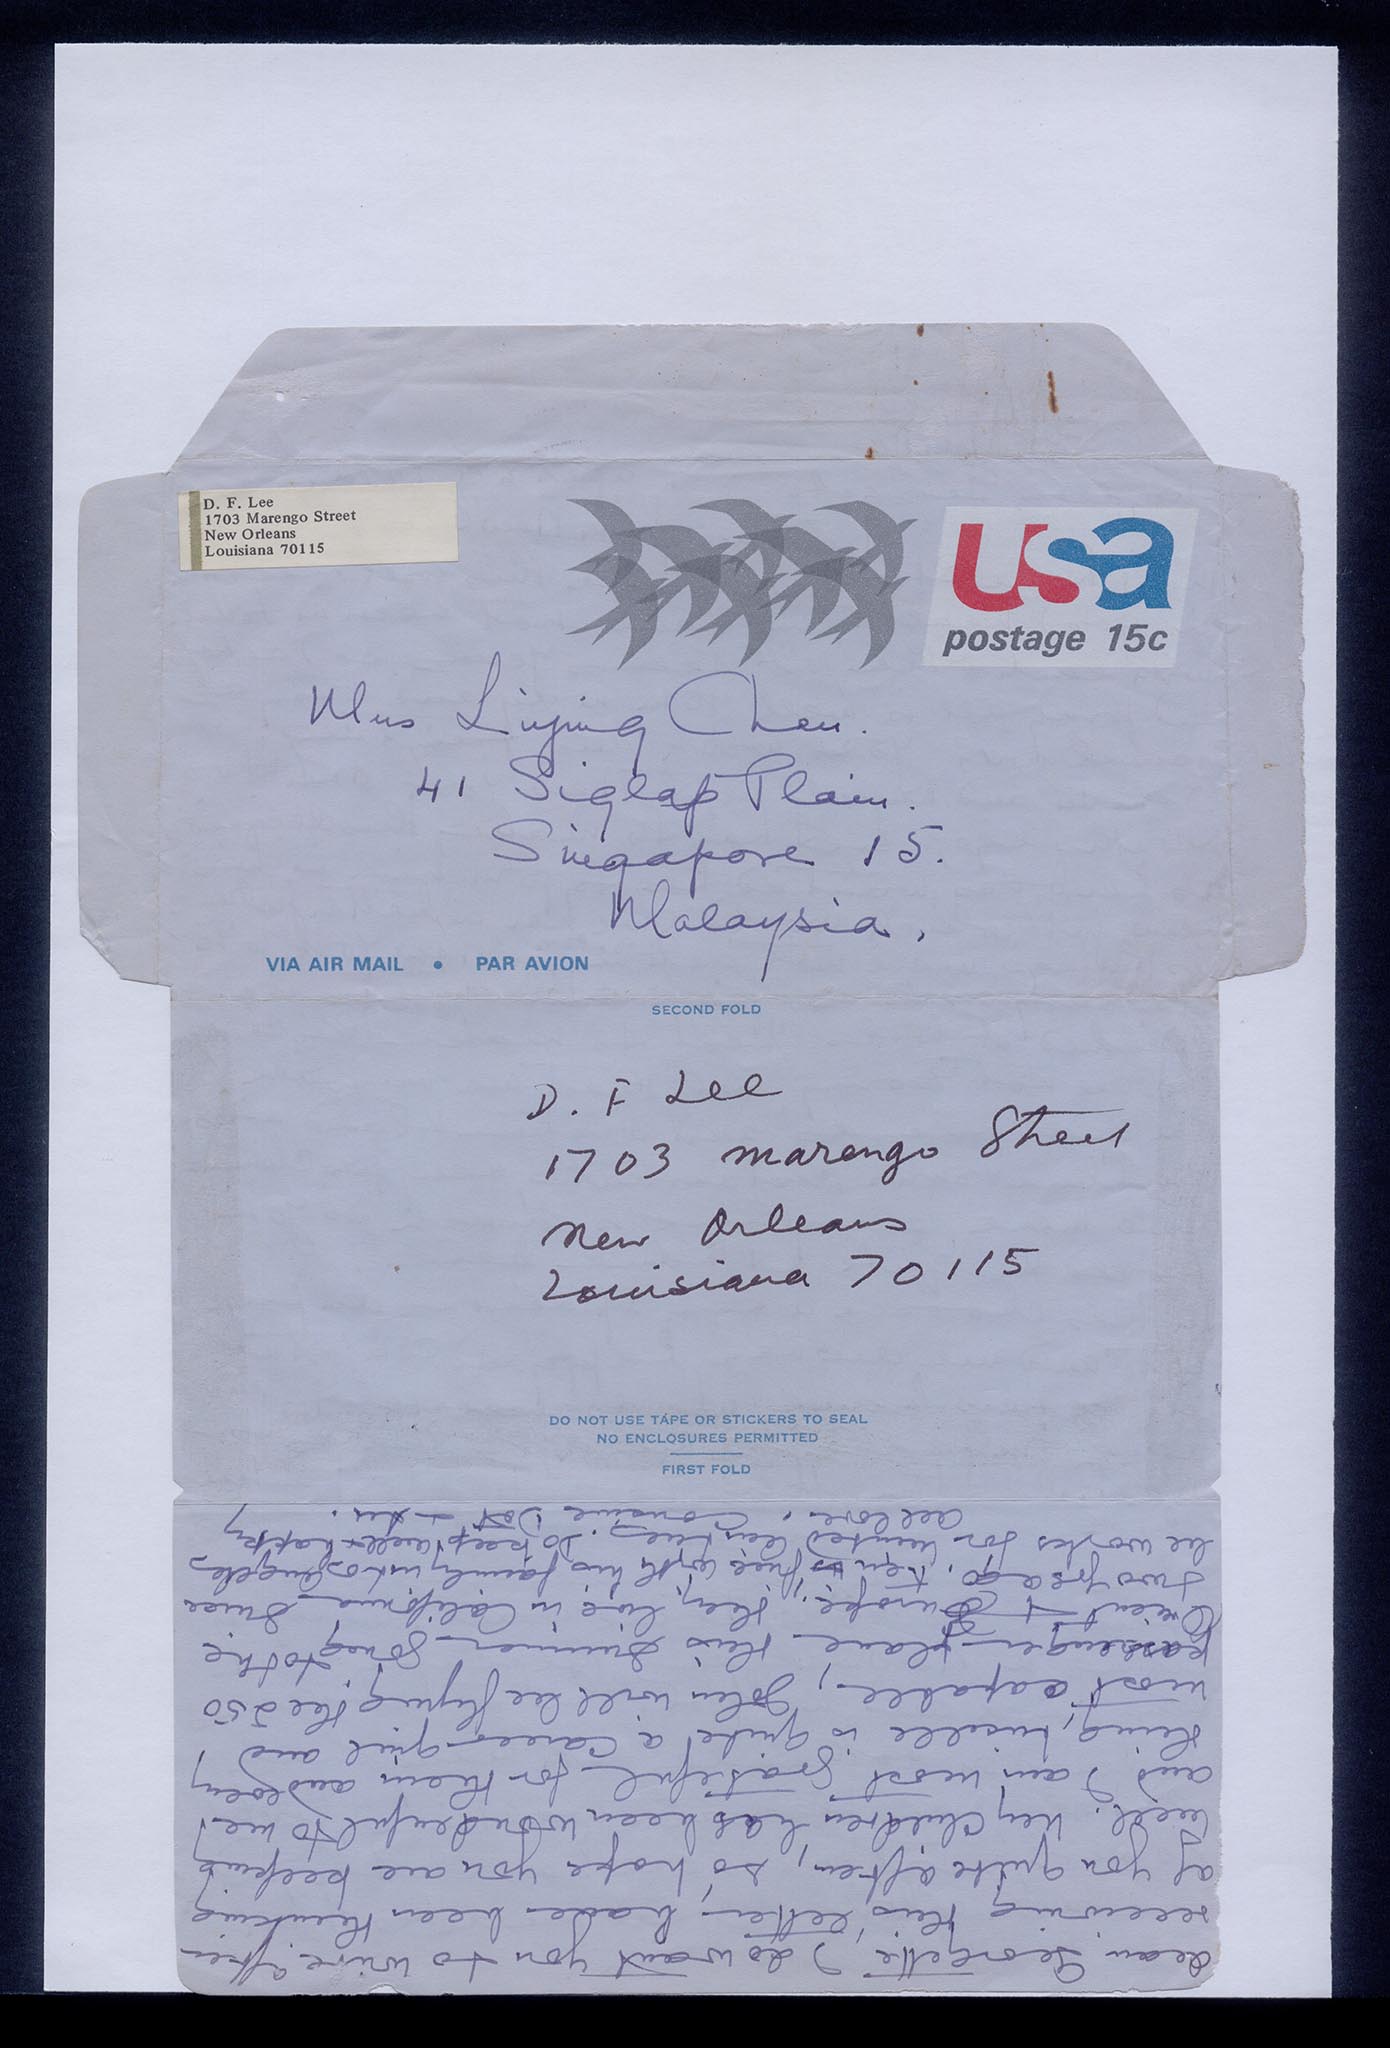 D. F. Lee
1703 Marengo Street
New Orleans
Louisiana 70115
usa
postage 15c
Mrs Liying Chen.
41 Siglap Plain.
Singapore 15.
Malaysia.
VIA AIR MAIL • PAR AVION
SECOND FOLD
D. F Lee
1703 Marengo Street
New Orleans
Louisiana 70115
DO NOT USE TAPE OR STICKERS TO SEAL
NO ENCLOSURES PERMITTED
FIRST FOLD
Dear Georgette, I do want you to write after
receiving this letter – hade been thinking
of you quite often, so hope you are keeping
well. My children has been wonderful to me,
and I am most grateful for them and every
thing, is quite a career-girl and,
most capable, John will be flying the 250
passenger plane this summer – going to the
Orient & Europe, they live in California – since
two yrs ago, Ken is here with his family in Los Angeles
he works for United Airlines. So keep well & happy
all love, Dot